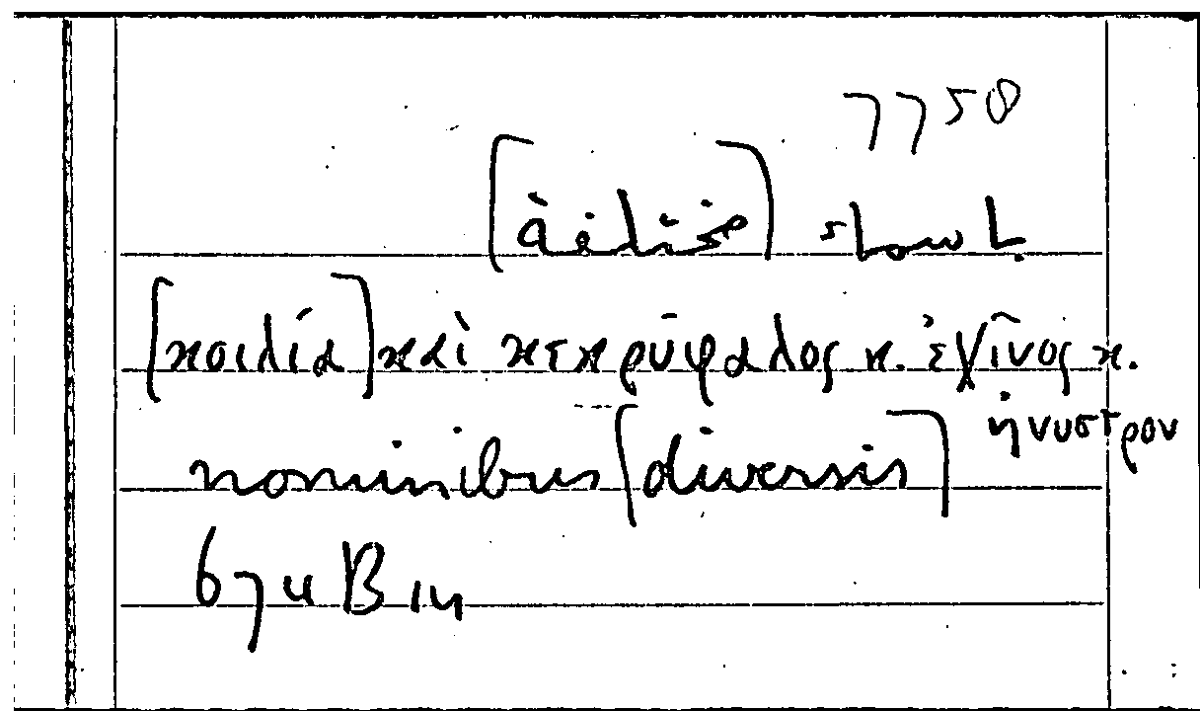 7758
باسماء [مختلفة]
[κοιλία] καὶ κεκρύφαλος κ. ἐχῖνος κ.
ἤνυστρον
nominibus [diversis]
674 B 14